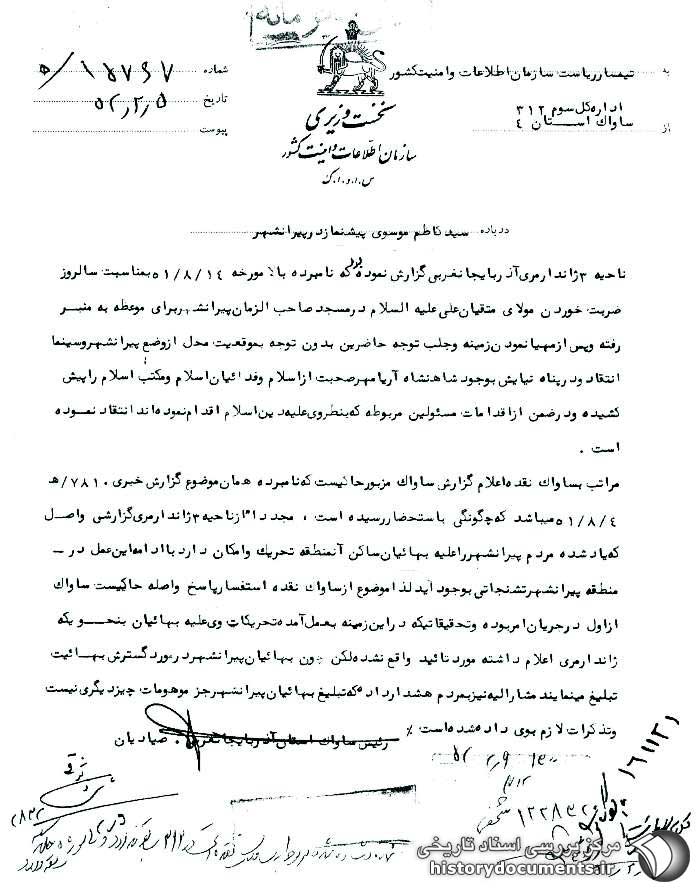 به تیمسار ریاست سازمان اطلاعات و امنیت کشور
اداره کل سوم ۳۱۲
از ساواک استان ۴
نخست وزیری
سازمان اطلاعات و امنیت کشور
س.ا.و.ا.ک
شماره ۱۵۷۶۷/ه
تاریخ ۵۲٫۲٫۵
پیوست
درباره سید کاظم موسوی پیشنماز در پیرانشهر
ناحیه ۳ ژاندارمری آذربایجانغربی گزارش نموده بود که نامبرده بالا مورخه ۵۱/۸/۱۴ بمناسبت سالروز
ضربت خوردن مولای متقیان علی علیه السلام در مسجد صاحب الزمان پیرانشهر برای موعظه به منبر
رفته و پس از مهیا نمودن زمینه وجلب توجه حاضرین بدون توجه بموقعیت محل از وضع پیرانشهر و سینما
انتقاد و در پناه نیایش بوجود شاهنشاه آریامهر صحبت از اسلام وفدائیان اسلام ومکتب اسلام را پیش
کشیده ودر ضمن از اقدامات مسئولین مربوطه که بنظر وی علیه دین اسلام اقدام نموده اند انتقاد نموده
است .
مراتب بساواک نقده اعلام گزارش ساواک مزبور حاکیست که نامبرده همان موضوع گزارش خبری ۷۸۱۰/ه
۵۱/۸/۴ میباشد که چگونگی باستحضار رسیده است ، مجددا از ناحیه ۳ ژاندارمری گزارشی واصل
که یاد شده مردم پیرانشهر را علیه بهائیان ساکن آن منطقه تحریک وامکان دارد با ادامه این عمل در ــ
منطقه پیرانشهر تشنجاتی بوجود آید لذا موضوع از ساواک نقده استفسار پاسخ واصله حاکیست ساواک
از اول در جریان امر بوده وتحقیقاتیکه در این زمینه بعمل آمده تحریکات وی علیه بهائیان بنحویکه
ژاندارمری اعلام داشته مورد تائید واقع نشده لکن چون بهائیان پیرانشهر در مورد گسترش بهائیت
تبلیغ مینمایند مشارالیه نیز بمردم هشدار داده که تبلیغ بهائیان پیرانشهر جز موهومات چیز دیگری نیست
وتذکرات لازم بوی داده شده است ٪
رئیس ساواک استان آذربایجانغربی . صیادیان
۱۶۱۱۳۱
۱۲۲۸۳۲
۲۸۳۲
مرکز بررسی اسناد تاریخی
historydocuments.ir